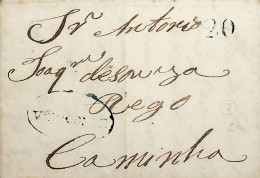 Sr. Antonio 20
Joaqm. de souza
Rego
Caminha